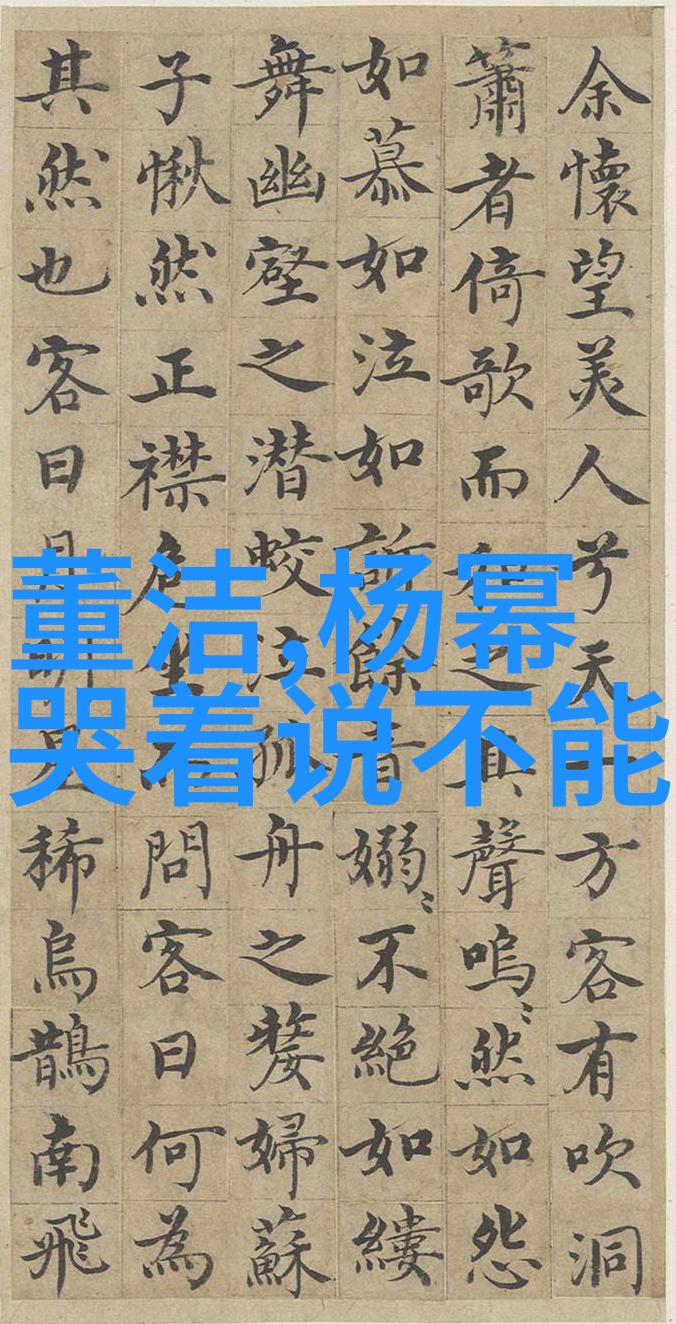 余懷望美人兮天一方客有吹洞
簫者倚歌而和之其聲嗚〻然如怨
如慕如泣如訴餘音嫋〻不絕如縷
舞幽壑之潜蛟泣孤舟之嫠婦蘇
子愀然正襟危坐而問客曰何為
其然也客曰月明星稀烏鵲南飛
董洁,杨幂
哭着说不能